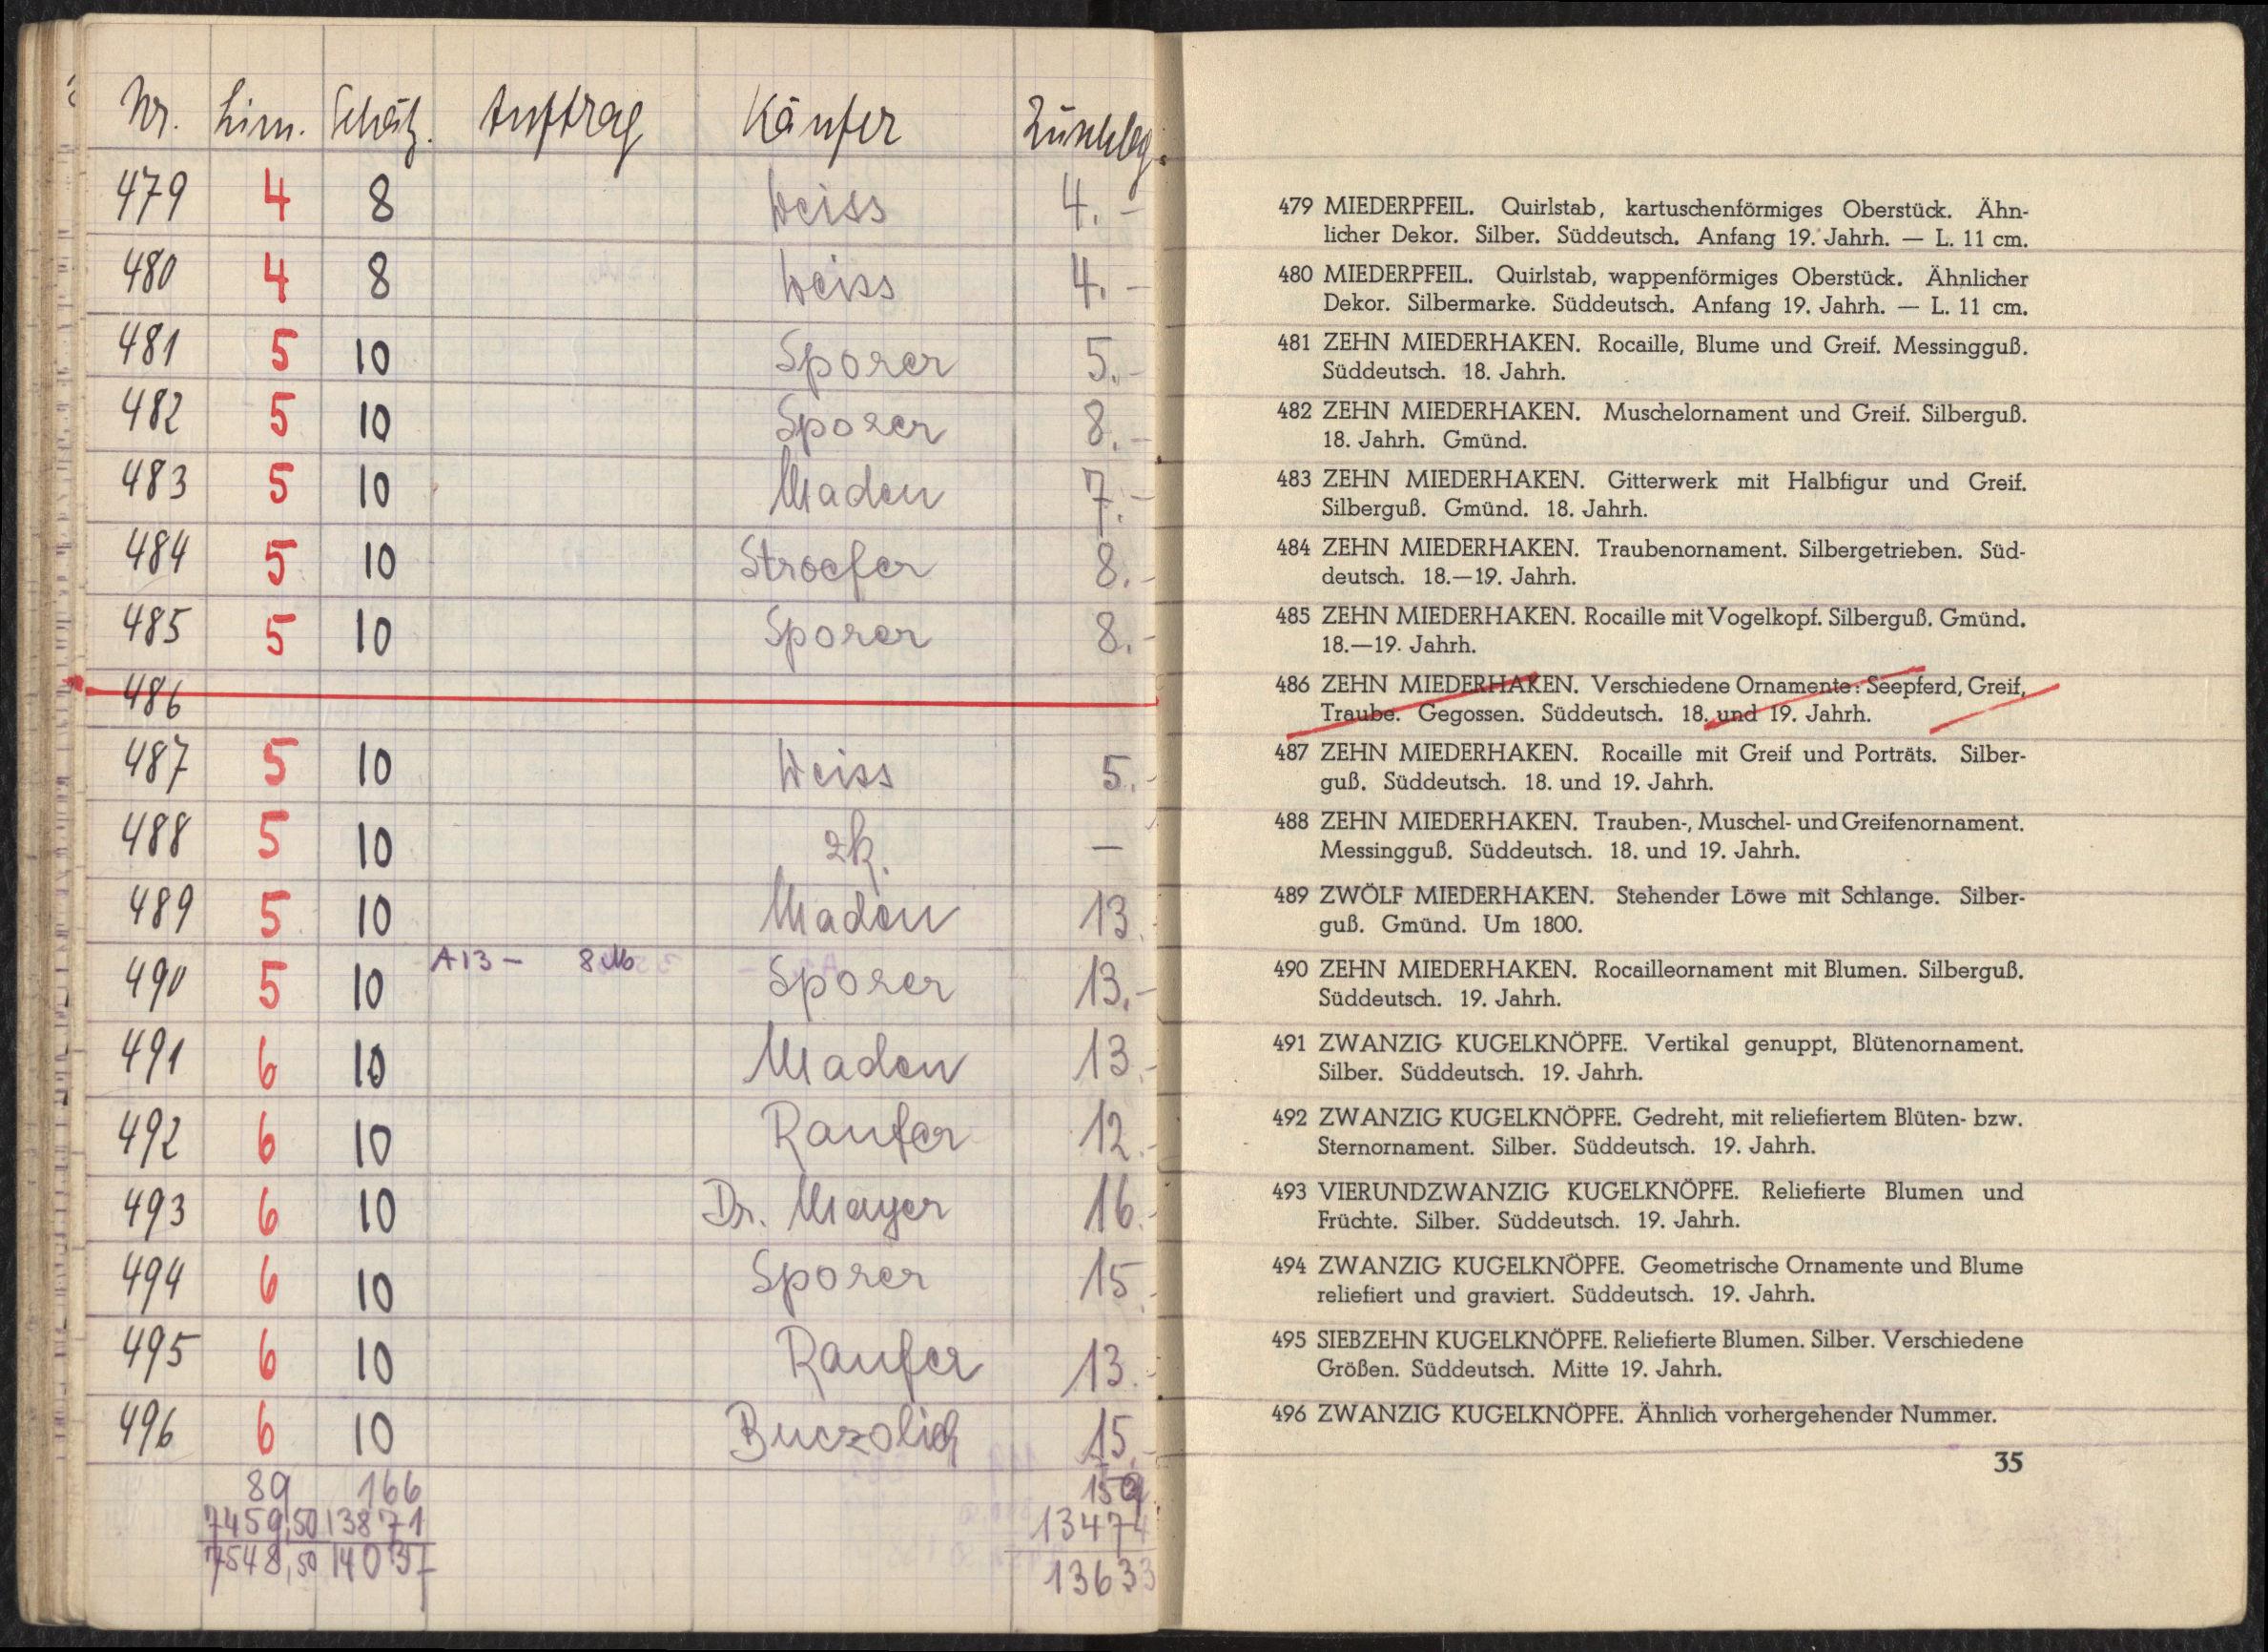 Nr. Lim. Schätz. Auftrag Käufer Zuschlag.
479 4 8 Weiss 4.-
480 4 8 Weiss 4.-
481 5 10 Sporer 5.-
482 5 10 Sporer 8.-
483 5 10 Maden 7.-
484 5 10 Stroefer 8.-
485 5 10 Sporer 8.-
486
487 5 10 Weiss 5.-
488 5 10 zk. —
489 5 10 Maden 13.-
490 5 10 A13 - 8 Sporer 13.-
491 6 10 Maden 13.-
492 6 10 Raufer 12.-
493 6 10 Dr. Mayer 16.-
494 6 10 Sporer 15.-
495 6 10 Raufer 13.-
496 6 10 Buczolich 15.-
89 166 159
7459,50 13871 13474
7548,50 14037 13633
479 MIEDERPFEIL. Quirlstab, kartuschenförmiges Oberstück. Ähn-
licher Dekor. Silber. Süddeutsch. Anfang 19. Jahrh. — L. 11 cm.
480 MIEDERPFEIL. Quirlstab, wappenförmiges Oberstück. Ähnlicher
Dekor. Silbermarke. Süddeutsch. Anfang 19. Jahrh. — L. 11 cm.
481 ZEHN MIEDERHAKEN. Rocaille, Blume und Greif. Messingguß.
Süddeutsch. 18. Jahrh.
482 ZEHN MIEDERHAKEN. Muschelornament und Greif. Silberguß.
18. Jahrh. Gmünd.
483 ZEHN MIEDERHAKEN. Gitterwerk mit Halbfigur und Greif.
Silberguß. Gmünd. 18. Jahrh.
484 ZEHN MIEDERHAKEN. Traubenornament. Silbergetrieben. Süd-
deutsch. 18.—19. Jahrh.
485 ZEHN MIEDERHAKEN. Rocaille mit Vogelkopf. Silberguß. Gmünd.
18.—19. Jahrh.
486 ZEHN MIEDERHAKEN. Verschiedene Ornamente: Seepferd, Greif,
Traube. Gegossen. Süddeutsch. 18. und 19. Jahrh.
487 ZEHN MIEDERHAKEN. Rocaille mit Greif und Porträts. Silber-
guß. Süddeutsch. 18. und 19. Jahrh.
488 ZEHN MIEDERHAKEN. Trauben-, Muschel- und Greifenornament.
Messingguß. Süddeutsch. 18. und 19. Jahrh.
489 ZWÖLF MIEDERHAKEN. Stehender Löwe mit Schlange. Silber-
guß. Gmünd. Um 1800.
490 ZEHN MIEDERHAKEN. Rocailleornament mit Blumen. Silberguß.
Süddeutsch. 19. Jahrh.
491 ZWANZIG KUGELKNÖPFE. Vertikal genuppt, Blütenornament.
Silber. Süddeutsch. 19. Jahrh.
492 ZWANZIG KUGELKNÖPFE. Gedreht, mit reliefiertem Blüten- bzw.
Sternornament. Silber. Süddeutsch. 19. Jahrh.
493 VIERUNDZWANZIG KUGELKNÖPFE. Reliefierte Blumen und
Früchte. Silber. Süddeutsch. 19. Jahrh.
494 ZWANZIG KUGELKNÖPFE. Geometrische Ornamente und Blume
reliefiert und graviert. Süddeutsch. 19. Jahrh.
495 SIEBZEHN KUGELKNÖPFE. Reliefierte Blumen. Silber. Verschiedene
Größen. Süddeutsch. Mitte 19. Jahrh.
496 ZWANZIG KUGELKNÖPFE. Ähnlich vorhergehender Nummer.
35